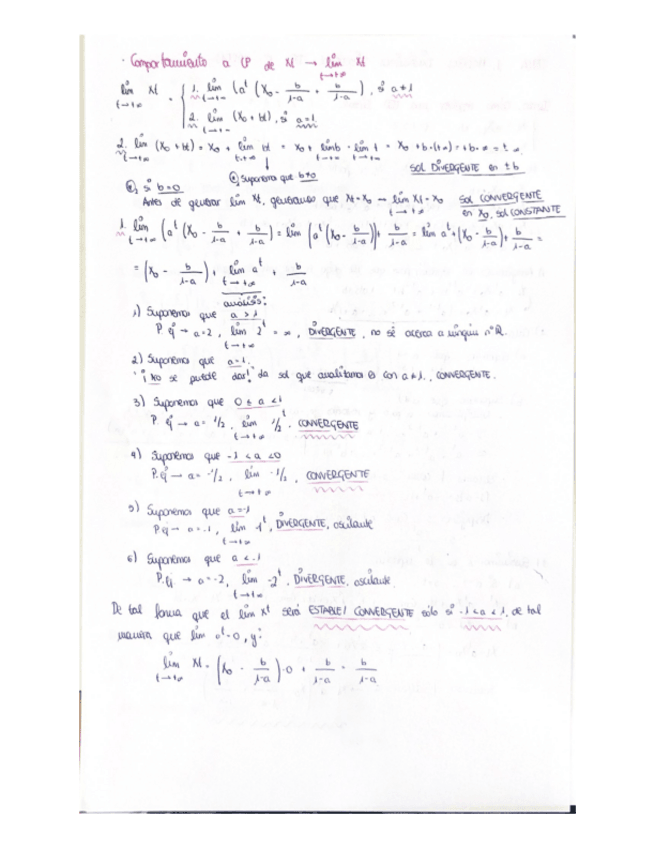 · Comportamiento a LP de Xt → lim Xt
t→+∞
lim Xt = { 1. lim (a^t (X0 - b/1-a + b/1-a), si a≠1
t→+∞
2. lim (X0 + bt), si a=1.
t→+∞
2. lim (X0 + bt) = X0 + lim bt = X0 + lim b · lim t = X0 + b·(+∞) = +b·∞ = ±∞
t→+∞
Sol DIVERGENTE en ±b
Suponemos que b≠0
si b=0
Antes de generar lim Xt, generando que Xt=X0 → lim Xt = X0 sol CONVERGENTE
t→+∞ en X0, sol CONSTANTE
1. lim (a^t (X0 - b/1-a + b/1-a) = lim (a^t (X0 - b/1-a)) + b/1-a = lim a^t + (X0 - b/1-a) + b/1-a =
t→+∞
= (X0 - b/1-a) + lim a^t + b/1-a
t→+∞
análisis:
1) Suponemos que a > 1
P. ej → a=2, lim 2^t = ∞, DIVERGENTE, no se acerca a ningún nº R.
t→+∞
2) Suponemos que a=1.
¡No se puede dar! da sol que analitamos es con a≠1., CONVERGENTE.
3) Suponemos que 0 ≤ a < 1
P. ej → a= 1/2, lim 1/2^t. CONVERGENTE
t→+∞
4) Suponemos que -1 < a < 0
P. ej → a= -1/2, lim -1/2, CONVERGENTE
t→+∞
5) Suponemos que a=-1
P. ej → a=-1, lim 1^t, DIVERGENTE, oscilante
t→+∞
6) Suponemos que a < -1
P. ej → a=-2, lim -2^t. DIVERGENTE, oscilante.
t→+∞
De tal forma que el lim Xt será ESTABLE/ CONVERGENTE sólo si -1 < a < 1, de tal
manera que lim a^t = 0, y:
lim Xt = (X0 - b/1-a) · 0 + b/1-a = b/1-a
t→+∞